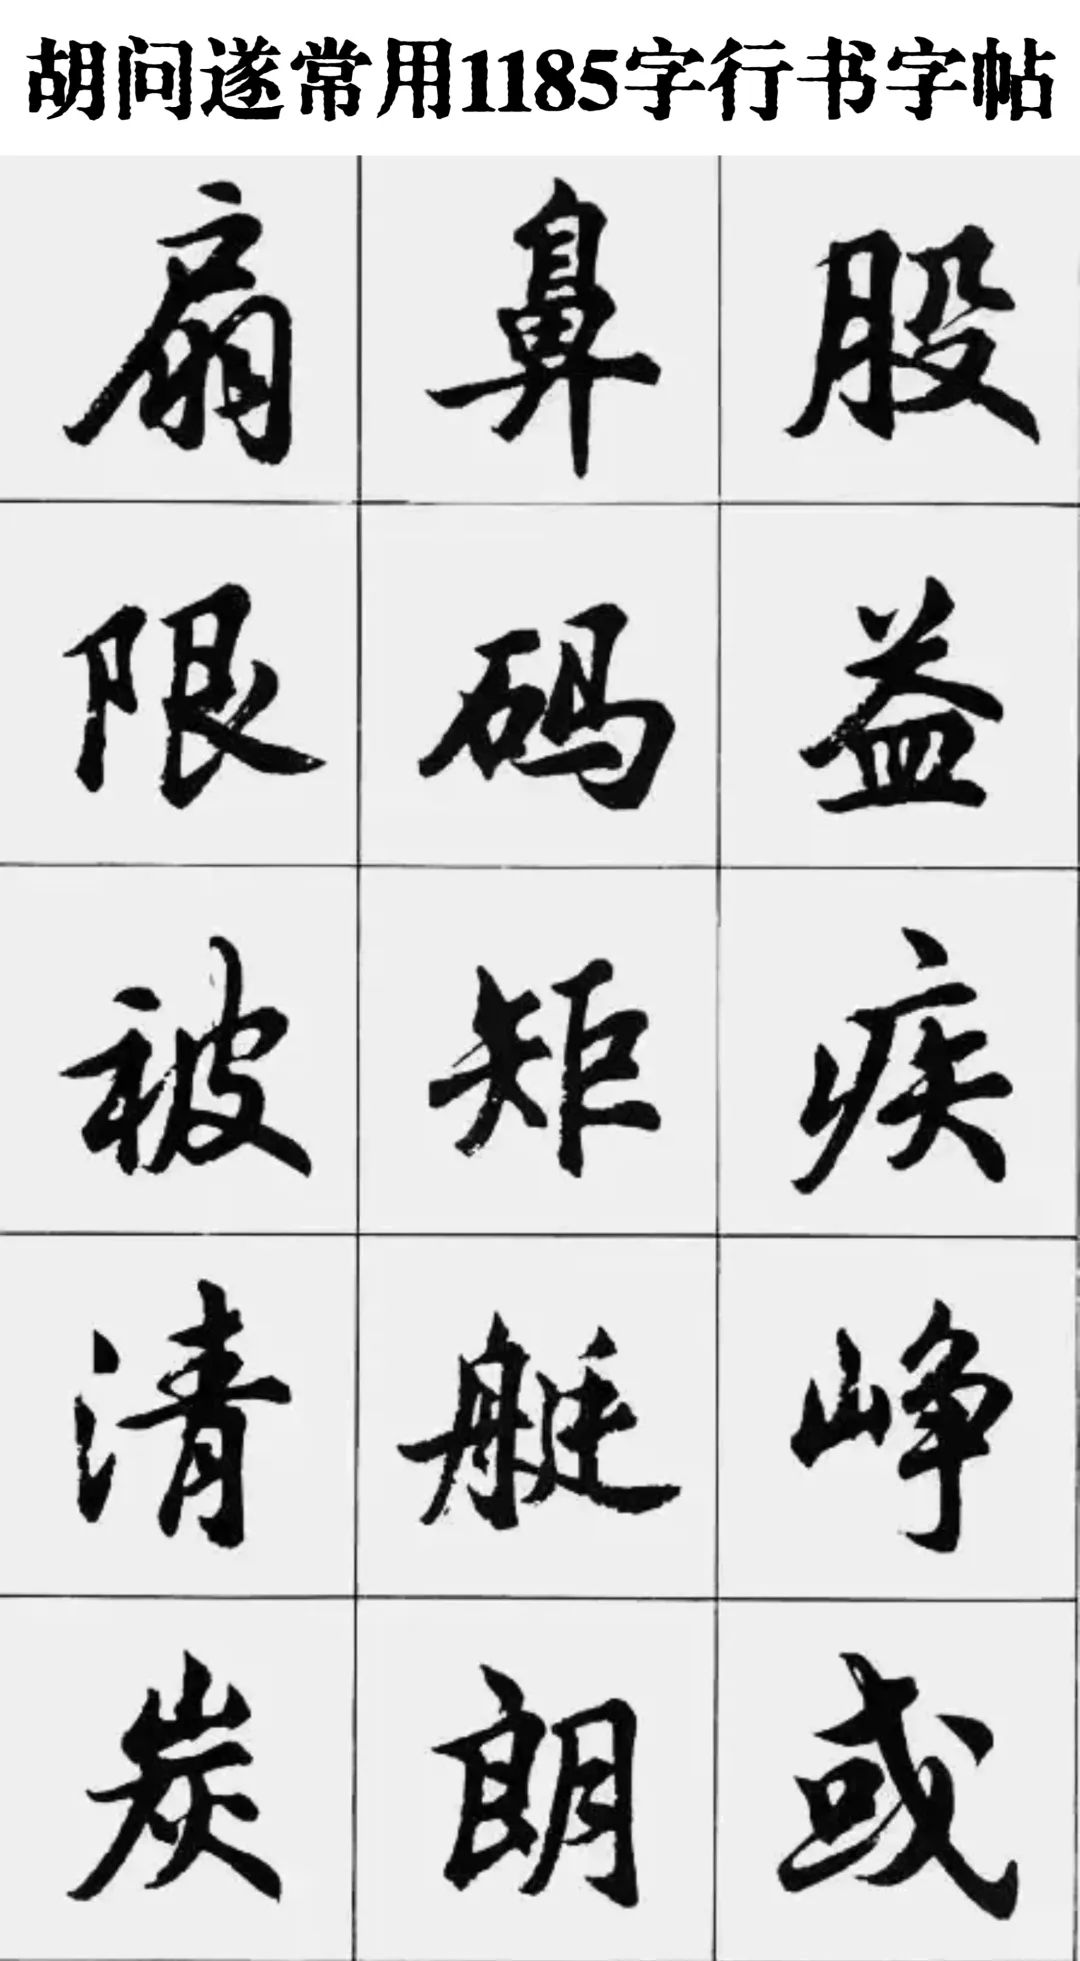 胡问遂常用1185字行书字帖
扇 鼻 股
限 码 益
被 矩 疾
清 艇 峥
炭 朗 或